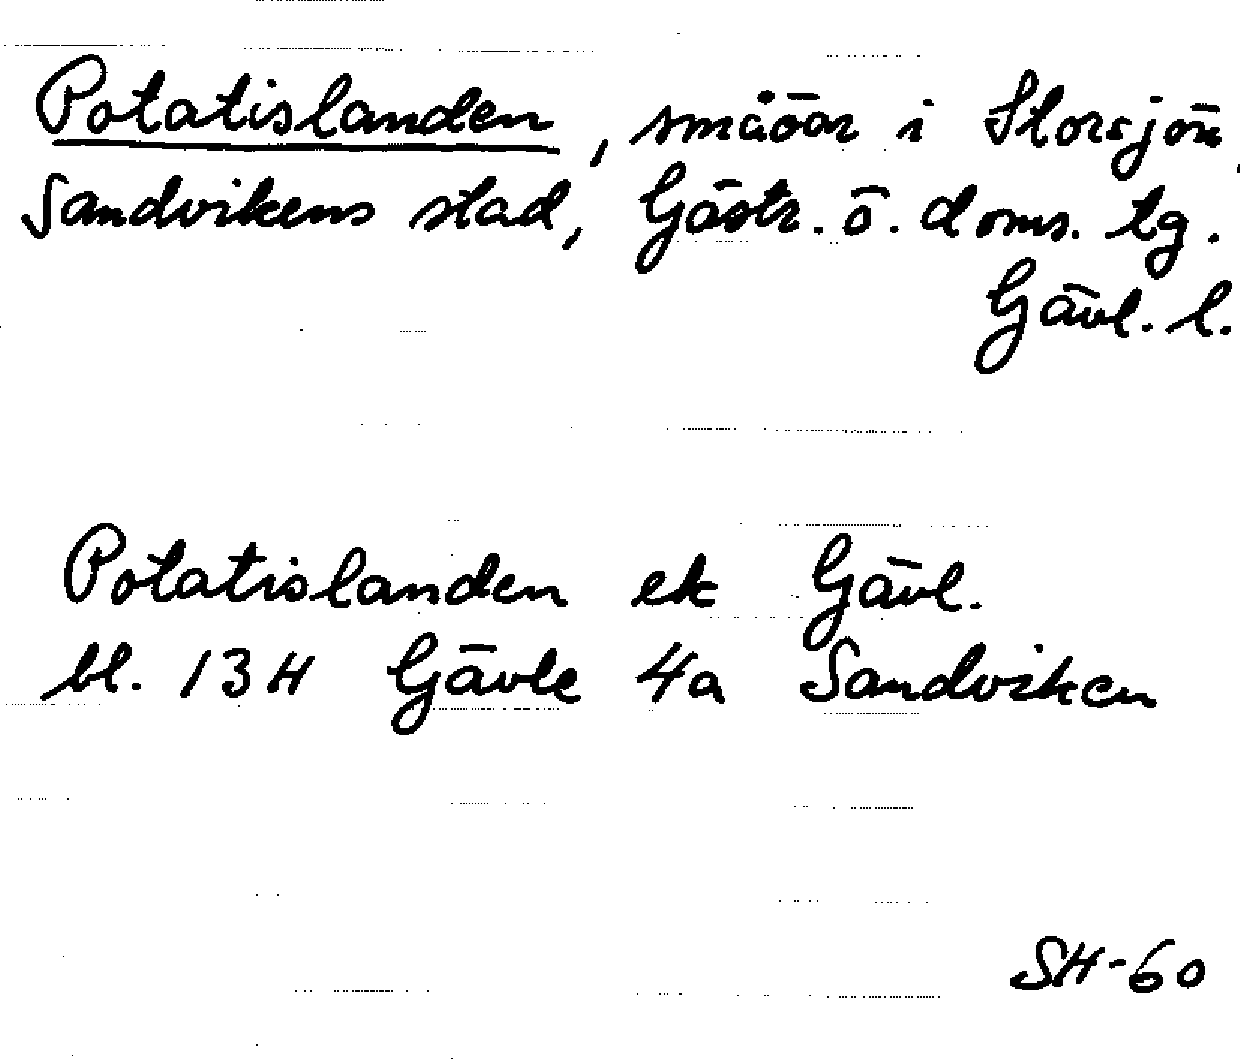 Potatislanden, småöar i Storsjön,
Sandvikens stad, Gästr. ö. doms. tg.
Gävl. l.
Potatislanden ek Gävl.
bl. 13H Gävle 4a Sandviken
SH-60